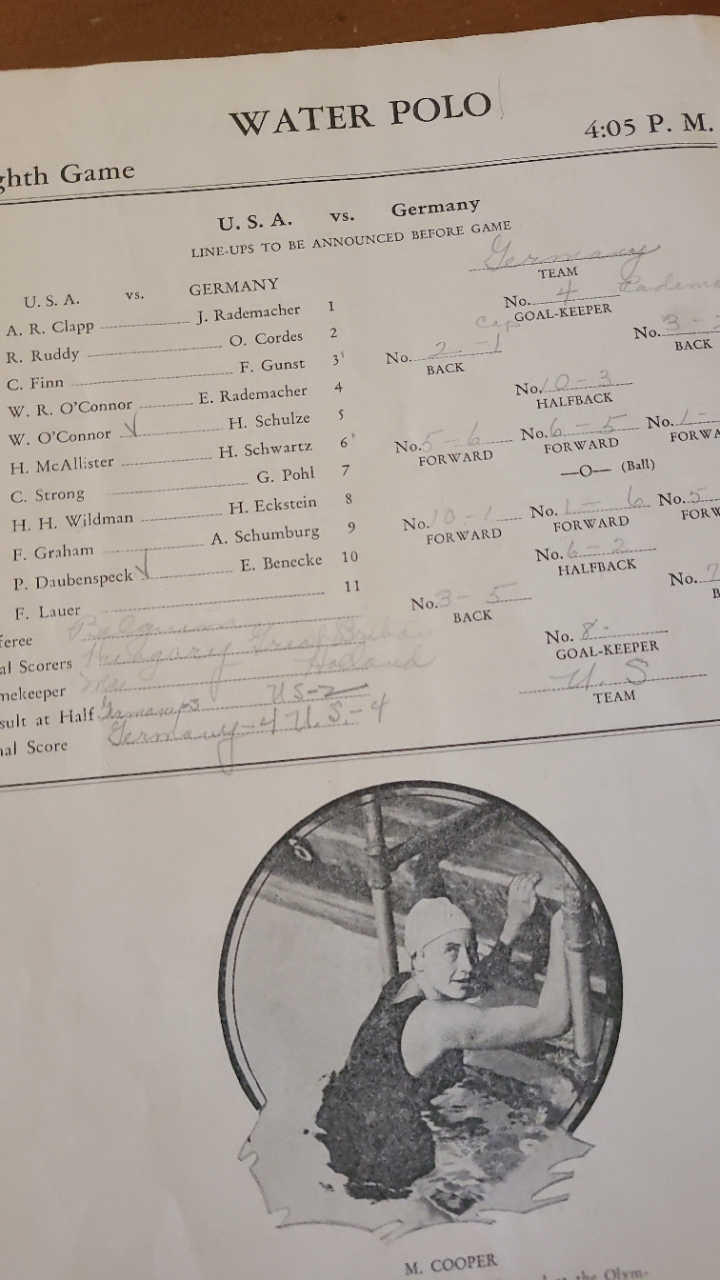 WATER POLO
ghth Game
4:05 P. M.
U. S. A. vs. Germany
LINE-UPS TO BE ANNOUNCED BEFORE GAME
U. S. A. vs. GERMANY
A. R. Clapp J. Rademacher 1
R. Ruddy O. Cordes 2
C. Finn F. Gunst 3
W. R. O'Connor E. Rademacher 4
W. O'Connor H. Schulze 5
H. McAllister H. Schwartz 6
C. Strong G. Pohl 7
H. H. Wildman H. Eckstein 8
F. Graham A. Schumburg 9
P. Daubenspeck E. Benecke 10
F. Lauer 11
feree Belgium
al Scorers Hungary Great Britain
mekeeper Holland
sult at Half Germany-3 US-2
nal Score Germany-4 U.S.-4
Germany
TEAM
No. 4
GOAL-KEEPER
Cap
No. 2-1
BACK
No. 3-
BACK
No. 10-3
HALFBACK
No. 5-6
FORWARD
No. 6-5
FORWARD
No. 1-
FORWA
—O— (Ball)
No. 10-1
FORWARD
No. 1-6
FORWARD
No. 5
FORW
No. 6-2
HALFBACK
No. 3-5
BACK
No. 7
B
No. 8-
GOAL-KEEPER
U.S
TEAM
M. COOPER
the Olym-